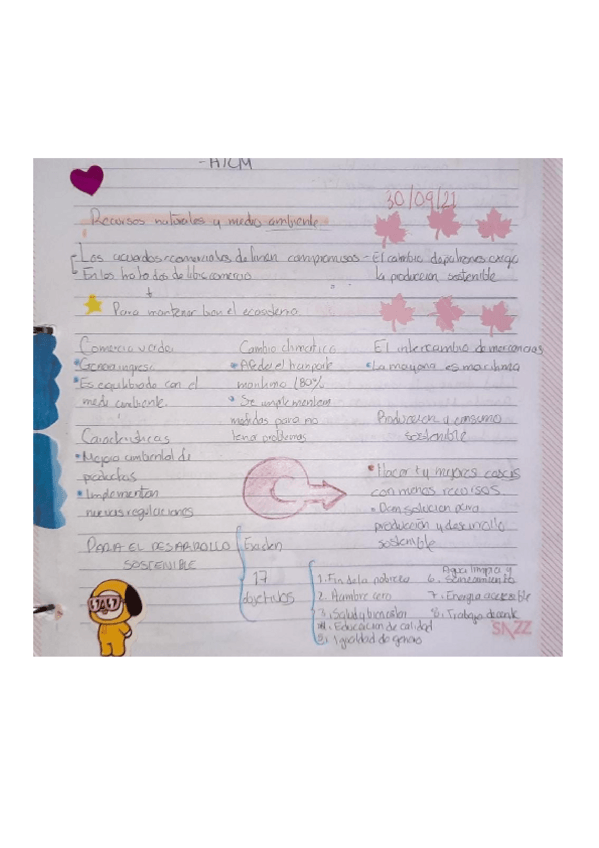 -AICM
30/09/21
Recursos naturales y medio ambiente
Los acuerdos comerciales definen compromisos
En los tratados de libre comercio
- El cambio de patrones exige
la producción sostenible
Para mantener bien el ecosistema
Comercio verde
• Genera ingresos
• Es equilibrado con el
medio ambiente.
Características
• Mejora ambiental de
productos
• Implementan
nuevas regulaciones
Cambio climatico
• Afecta el transporte
maritimo (80%
• Se implementan
medidas para no
tener problemas
El intercambio de mercancias
• La mayoria es maritima
Produccion y consumo
sostenible
• Hacer + y mejores cosas
con menos recursos
• Dan solucion para
producción y desarrollo
sostenible
PARA EL DESARROLLO
SOSTENIBLE
Existen
17
objetivos
1. Fin de la pobreza
2. Hambre cero
3. Salud y bienestar
4. Educacion de calidad
5. Igualdad de genero
6. Agua limpia y
saneamiento
7. Energia accesible
8. Trabajo decente